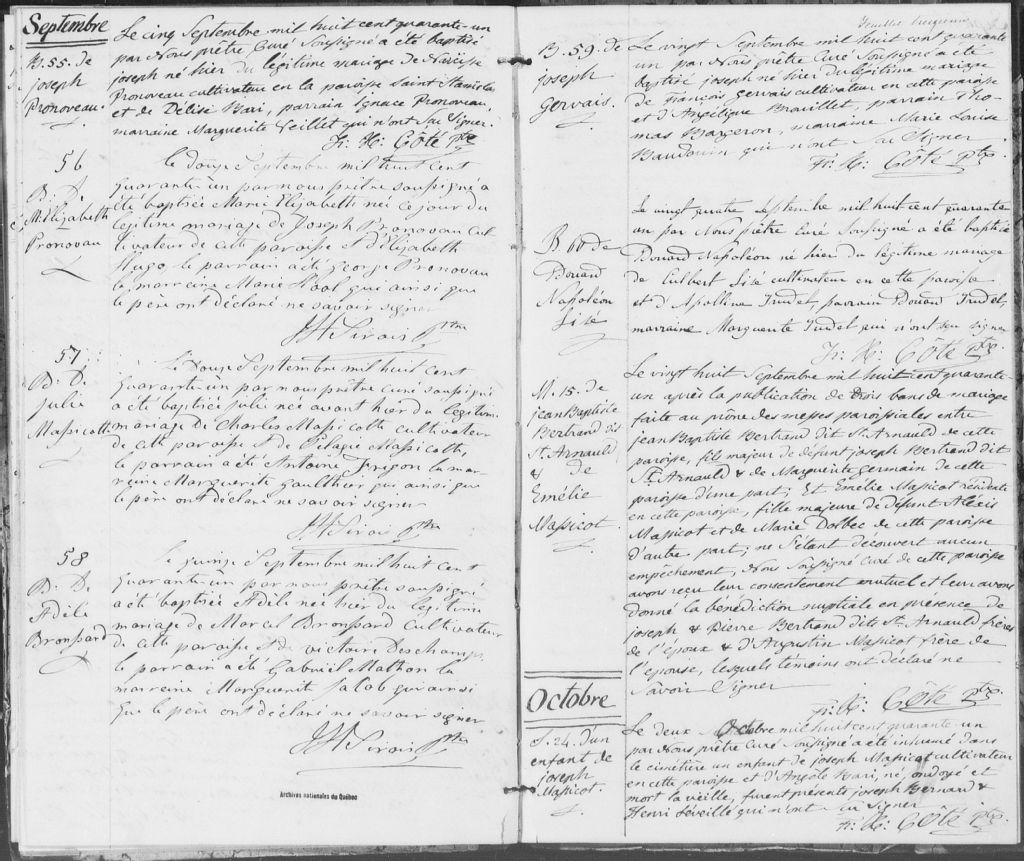 Septembre
B. 55. de
joseph
Pronoveau.
Le cinq Septembre mil huit cent quarante-un
par Nous prêtre Curé Soussigné a été baptisé
joseph né hier du légitime mariage de Narcisse
Pronoveau cultivateur en la paroisse Saint Stanislas
et de Délise Bari, parrain Ignace Pronoveau,
marraine Marguerite Feillet qui n'ont su Signer.
Fr. H. Côté Ptre
56
B. D.
M. Elizabeth
Pronovau
Le douze Septembre mil huit cent
quarante-un par nous prêtre soussigné a
été baptisée Marie Elizabeth née ce jour du
légitime mariage de Joseph Pronovau cul
tivateur de cette paroisse et d'Elizabeth
Hugo le parrain a été George Pronovau
la marreine Marie qui ainsi que
le père ont déclaré ne savoir signer
JH Sirois Ptre
57
B. D.
Julie
Massicotte
Le Douze Septembre mil huit cent
quarante-un par nous prêtre curé soussigné
a été baptisée julie née avant hier du légitime
mariage de Charles Massicotte cultivateur
de cette paroisse et de Pélagie Massicotte,
le parrain a été Antoine la mar-
reine Marguerite Gaulthier qui ainsi que
le père ont déclaré ne savoir signer
JH Sirois Ptre
58
B. D.
Adèle
Bronsard
Le quinze Septembre mil huit cent
quarante-un par nous prêtre soussigné
a été baptisée Adèle née hier du légitime
mariage de Marcel Bronsard Cultivateur
de cette paroisse et de victoire Deschamps,
le parrain a été Gabriel Mathon la
marreine Marguerite Jacob qui ainsi
que le père ont déclaré ne savoir signer
JH Sirois Ptre
Archives nationales du Québec
B. 59. de
joseph
Gervais.
Le vingt Septembre mil huit cent quarante
un par Nous prêtre Curé Soussigné a été
baptisé joseph né hier du légitime mariage
de François Gervais cultivateur en cette paroisse
et d'Angélique Brouillet, parrain Tho-
mas Bargeron, marraine Marie Louise
Baudouin qui n'ont su Signer
Fr. H. Côté Ptre
B. 60 de
Edouard
Napoléon
Lisé
Le vingt quatre Septembre mil huit cent quarante
un par Nous prêtre Curé Soussigné a été baptisé
Edouard Napoléon né hier du légitime mariage
de Culbert Lisé cultivateur en cette paroisse
et d'Apolline Trudel, parrain Edouard Trudel,
marraine Marguerite Trudel qui n'ont su signer
Fr. H. Côté Ptre.
M. 15. de
jean Baptiste
Bertrand dit
St. Arnauld
& de
Emélie
Massicot.
Le vingt huit Septembre mil huit cent quarante-
un après la publication de trois bans de mariage
faite au prône des messes paroissiales entre
jean Baptiste Bertrand dit St. Arnauld de cette
paroisse, fils majeur de défunt joseph Bertrand dit
St. Arnauld & de Marguerite germain de cette
paroisse d'une part; Et Emélie Massicot résidente
en cette paroisse, fille majeure de défunt Alexis
Massicot et de Marie Dolbec de cette paroisse
d'autre part; ne s'étant découvert aucun
empêchement, Nous Soussigné Curé de cette paroisse
avons reçu leur consentement mutuel et leur avons
donné la bénédiction nuptiale en présence de
joseph & Pierre Bertrand dits St. Arnauld frères
de l'époux & d'Augustin Massicot frère de
l'épouse, lesquels témoins ont déclaré ne
Savoir Signer
Fr. H. Côté Ptre.
Octobre
S. 24. d'un
enfant de
joseph
Massicot.
Le deux Octobre mil huit cent quarante-un
par Nous prêtre Curé Soussigné a été inhumé dans
le cimétière un enfant de joseph Massicot cultivateur
en cette paroisse et d'Angèle Bari, né, ondoyé et
mort la veille, furent présents joseph Bernard &
Henri Léveillé qui n'ont su signer
Fr. H. Côté Ptre.